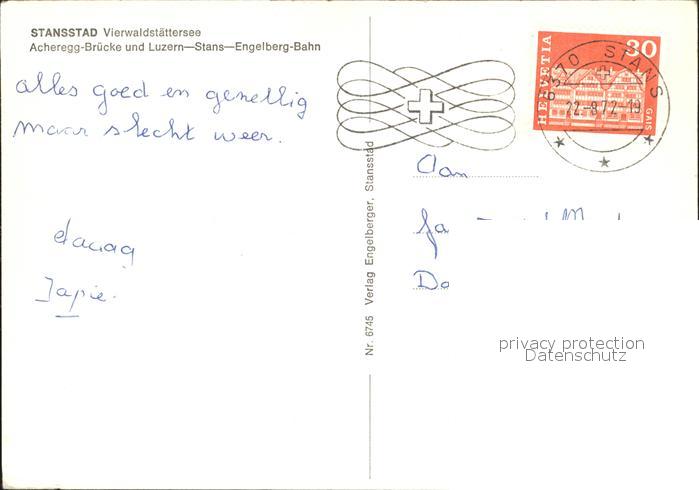 STANSSTAD Vierwaldstättersee
Acheregg-Brücke und Luzern—Stans—Engelberg-Bahn
alles goed en gezellig
maar slecht weer.
Japie.
Nr. 6745 Verlag Engelberger, Stansstad
HELVETIA
30
GAIS
6370 STANS
22.-8.72.-19
Aan
fa
Do
privacy protection
Datenschutz